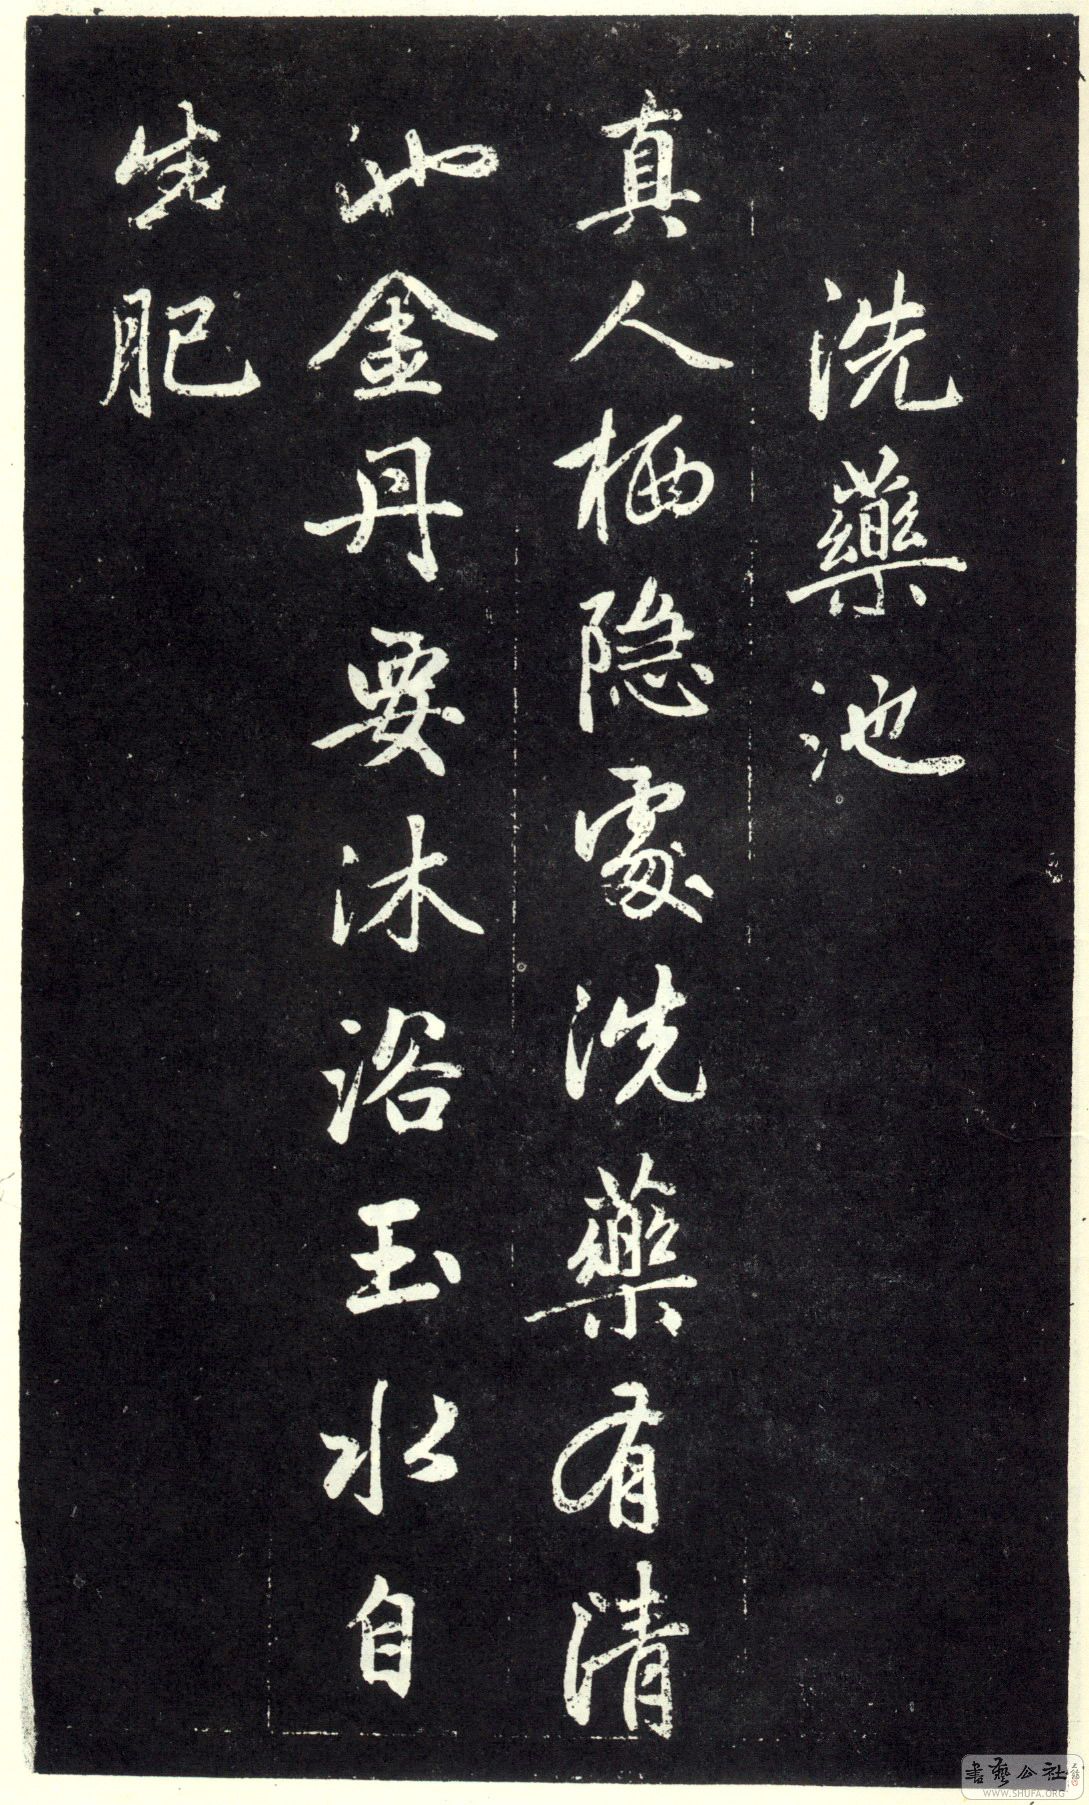 洗藥池
真人栖隐處洗藥有清
池金丹要沐浴玉水自
生肥
書藝公社
WWW.SHUFA.ORG